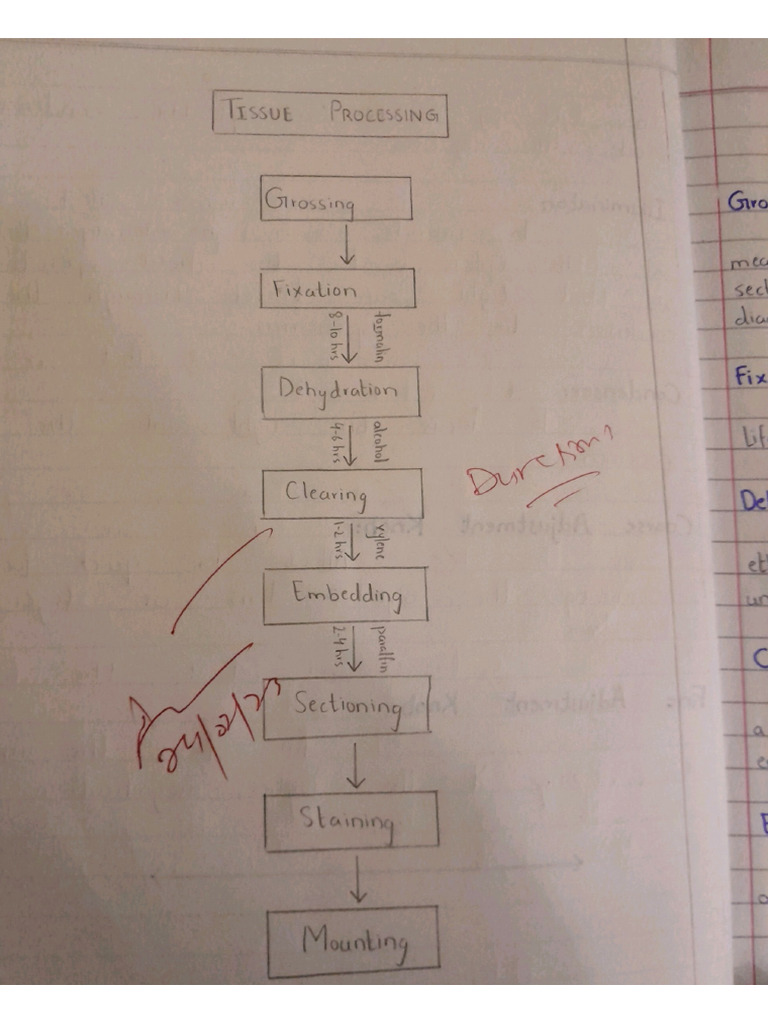 TISSUE PROCESSING
Grossing
Fixation
8-10 hrs
formalin
Dehydration
4-6 hrs
alcohol
Clearing
1-2 hrs
xylene
Embedding
2-4 hrs
paraffin
Sectioning
Staining
Mounting
Duration?
24/02/23
Gro
mea
sect
dia
Fix
Lif
De
et
un
C
a
E